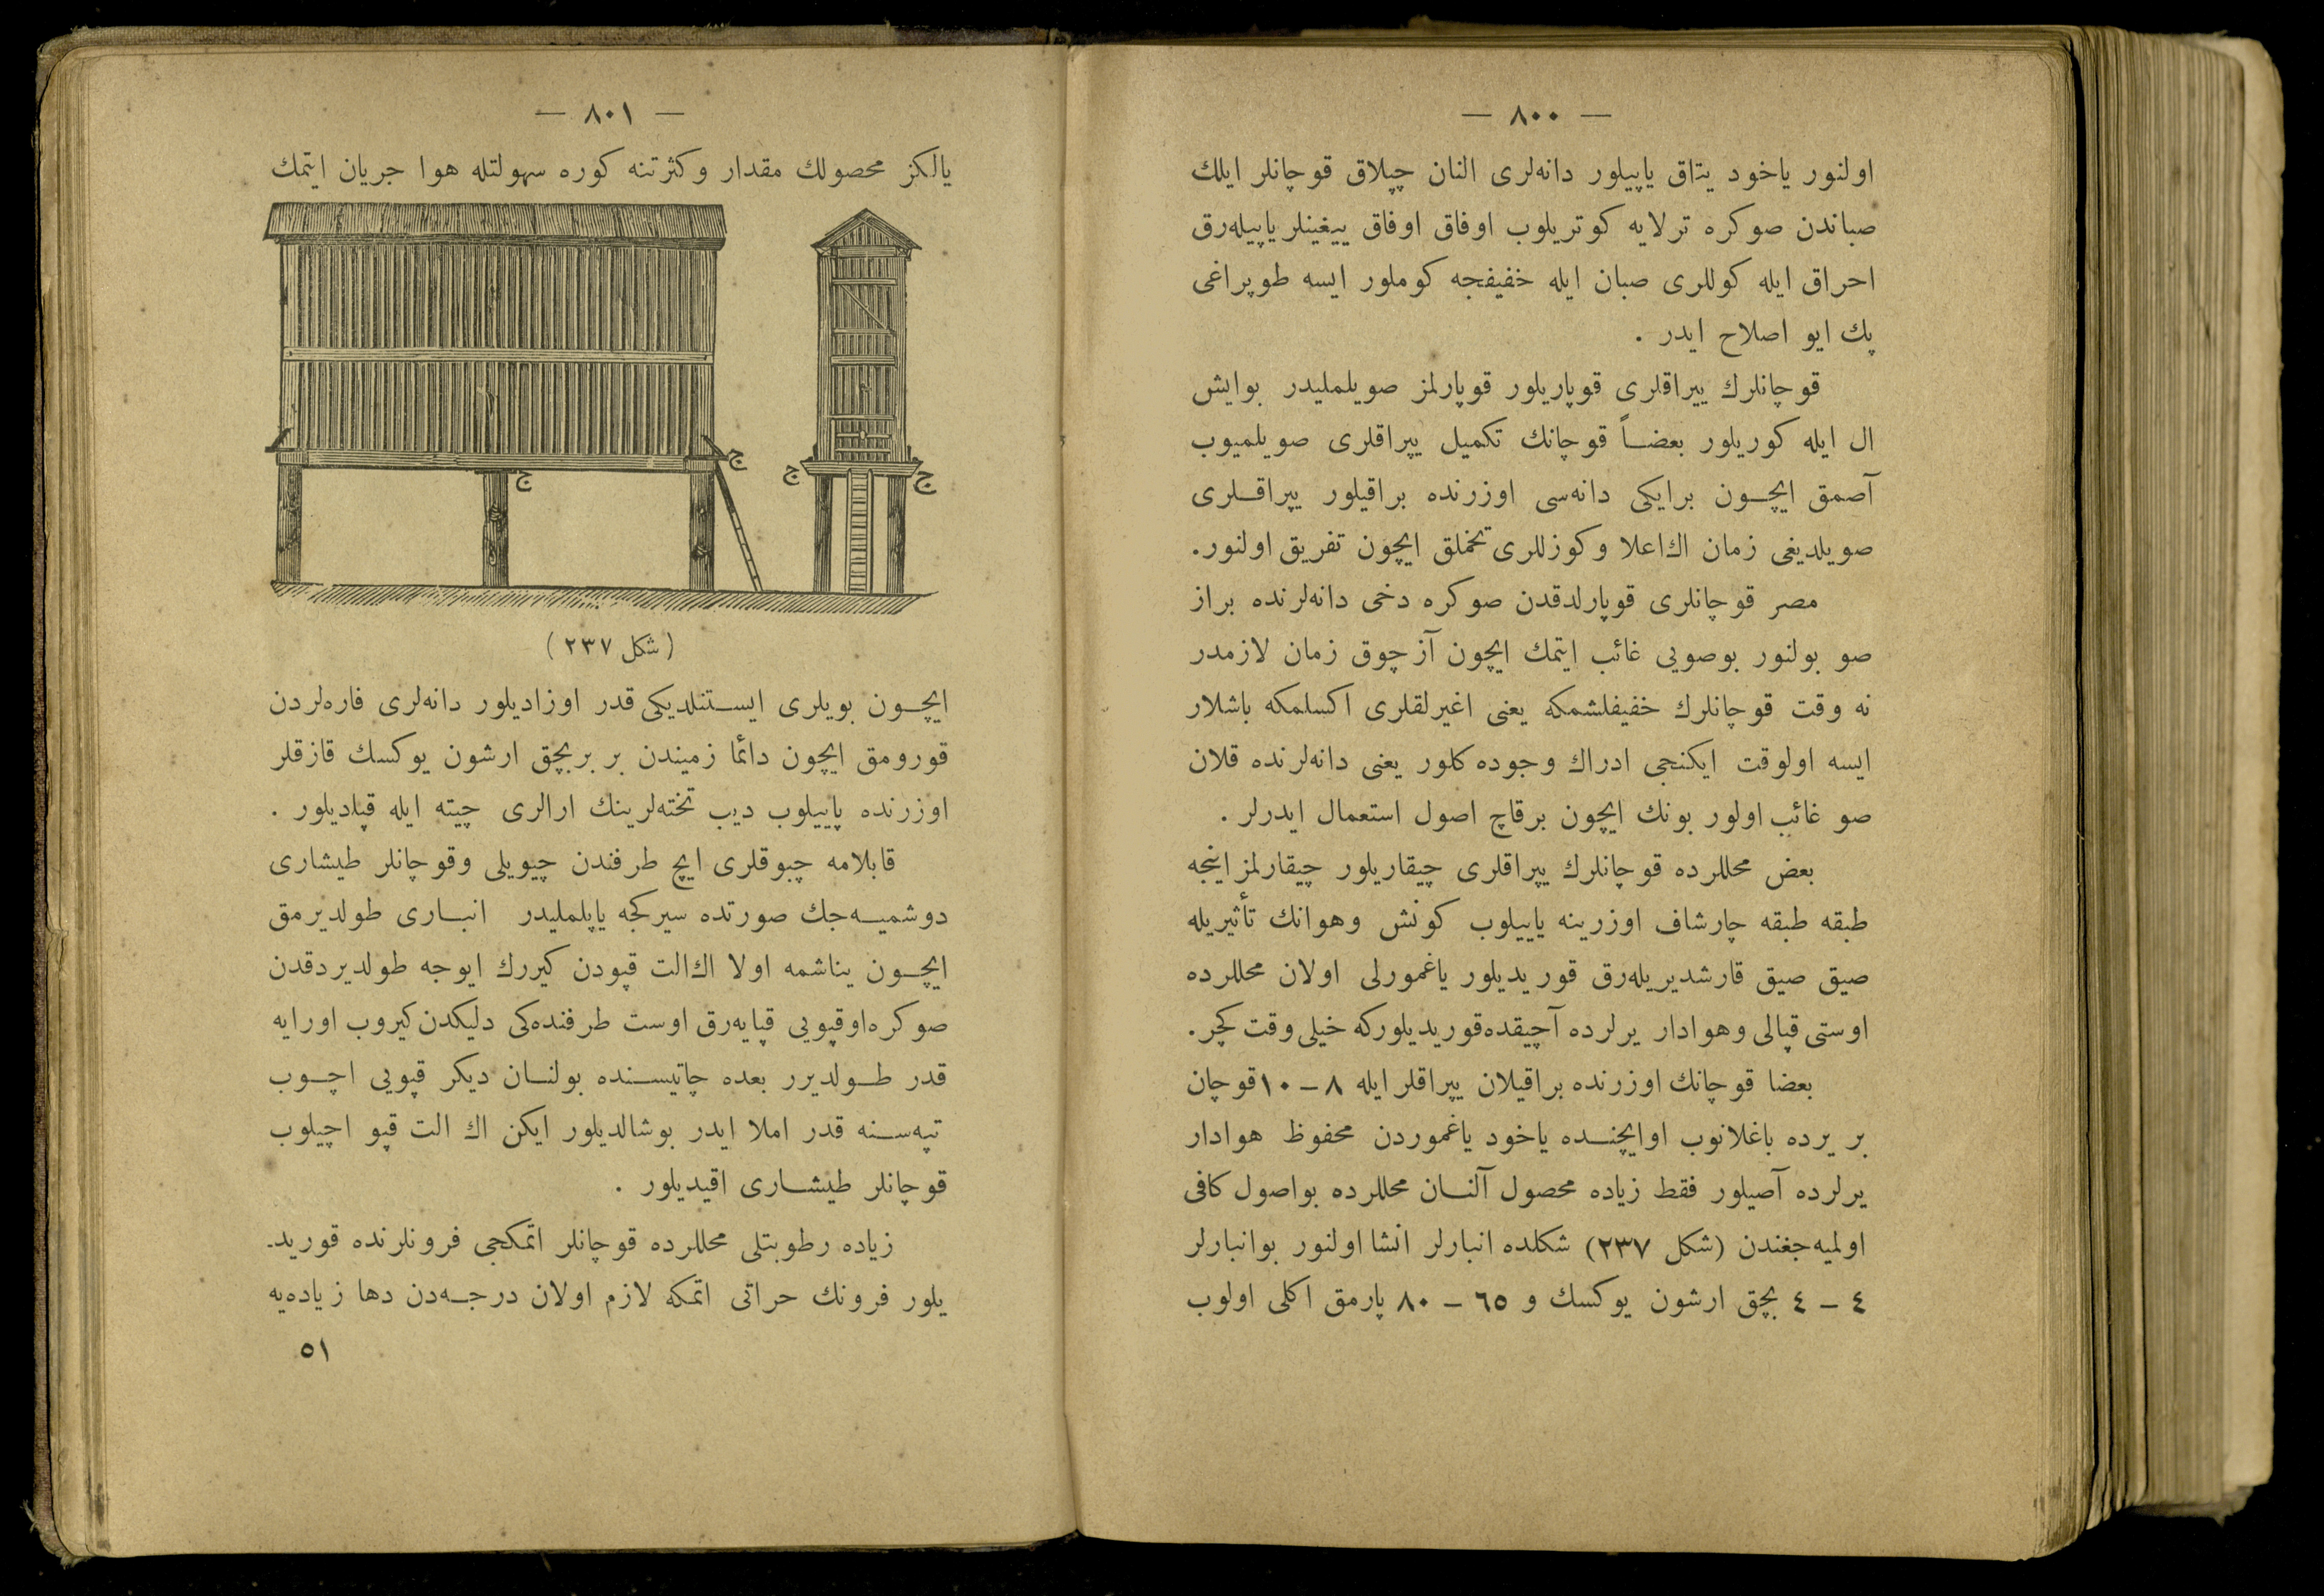 — ٨٠٠ —
اولنور ياخود يتاق ياپيلور دانه‌لرى النان چپلاق قوچانلر ايلك
صباندن صوكره ترلايه كوتريلوب اوفاق اوفاق ييغينلر ياپيله‌رق
احراق ايله كوللرى صبان ايله خفيفجه كوملور ايسه طوپراغى
پك ايو اصلاح ايدر .
قوچانلرك يپراقلرى قوپاريلور قوپارلمز صويلمليدر بوايش
ال ايله كوريلور بعضاً قوچانك تكميل يپراقلرى صويلميوب
آصمق ايچون برايكى دانه‌سى اوزرنده براقيلور يپراقلرى
صويلديغى زمان اك اعلا وكوزللرى تخملق ايچون تفريق اولنور.
مصر قوچانلرى قوپارلدقدن صوكره دخى دانه‌لرنده براز
صو بولنور بوصويى غائب ايتمك ايچون آزچوق زمان لازمدر
نه وقت قوچانلرك خفيفلشمكه يعنى اغيرلقلرى اكسلمكه باشلار
ايسه اولوقت ايكنجى ادراك وجوده كلور يعنى دانه‌لرنده قلان
صو غائب اولور بونك ايچون برقاچ اصول استعمال ايدرلر .
بعض محللرده قوچانلرك يپراقلرى چيقاريلور چيقارلمز اينجه
طبقه طبقه چارشاف اوزرينه ياييلوب كونش وهوانك تأثيريله
صيق صيق قارشديريله‌رق قوريديلور ياغمورلى اولان محللرده
اوستى قپالى وهوادار يرلرده آچيقده قوريديلوركه خيلى وقت كچر.
بعضا قوچانك اوزرنده براقيلان يپراقلر ايله ٨ – ١٠ قوچان
بر يرده باغلانوب اوايچنده ياخود ياغموردن محفوظ هوادار
يرلرده آصيلور فقط زياده محصول آلنان محللرده بواصول كافى
اولميه‌جغندن (شكل ٢٣٧) شكلده انبارلر انشا اولنور بوانبارلر
٤ – ٤ بچق ارشون يوكسك و ٦٥ – ٨٠ پارمق اكلى اولوب
— ٨٠١ —
يالكز محصولك مقدار وكثرتنه كوره سهولتله هوا جريان ايتمك
ج
ج
ج
ج
(شكل ٢٣٧)
ايچون بويلرى ايستنلديكى قدر اوزاديلور دانه‌لرى فاره‌لردن
قورومق ايچون دائما زميندن بر بربچق ارشون يوكسك قازقلر
اوزرنده ياپيلوب ديب تخته‌لرينك ارالرى چيته ايله قپاديلور .
قابلامه چبوقلرى ايچ طرفندن چيويلى وقوچانلر طيشارى
دوشميه‌جك صورتده سيركجه ياپلمليدر انبارى طولديرمق
ايچون يناشمه اولا اك الت قپودن كيررك ايوجه طولديردقدن
صوكره اوقپويى قپايه‌رق اوست طرفنده‌كى دليكدن كيروب اورايه
قدر طولديرر بعده چاتيسنده بولنان ديكر قپويى اچوب
تپه‌سنه قدر املا ايدر بوشالديلور ايكن اك الت قپو اچيلوب
قوچانلر طيشارى اقيديلور .
زياده رطوبتلى محللرده قوچانلر اتمكجى فرونلرنده قوريد-
يلور فرونك حراتى اتمكه لازم اولان درجه‌دن دها زياده‌يه
٥١